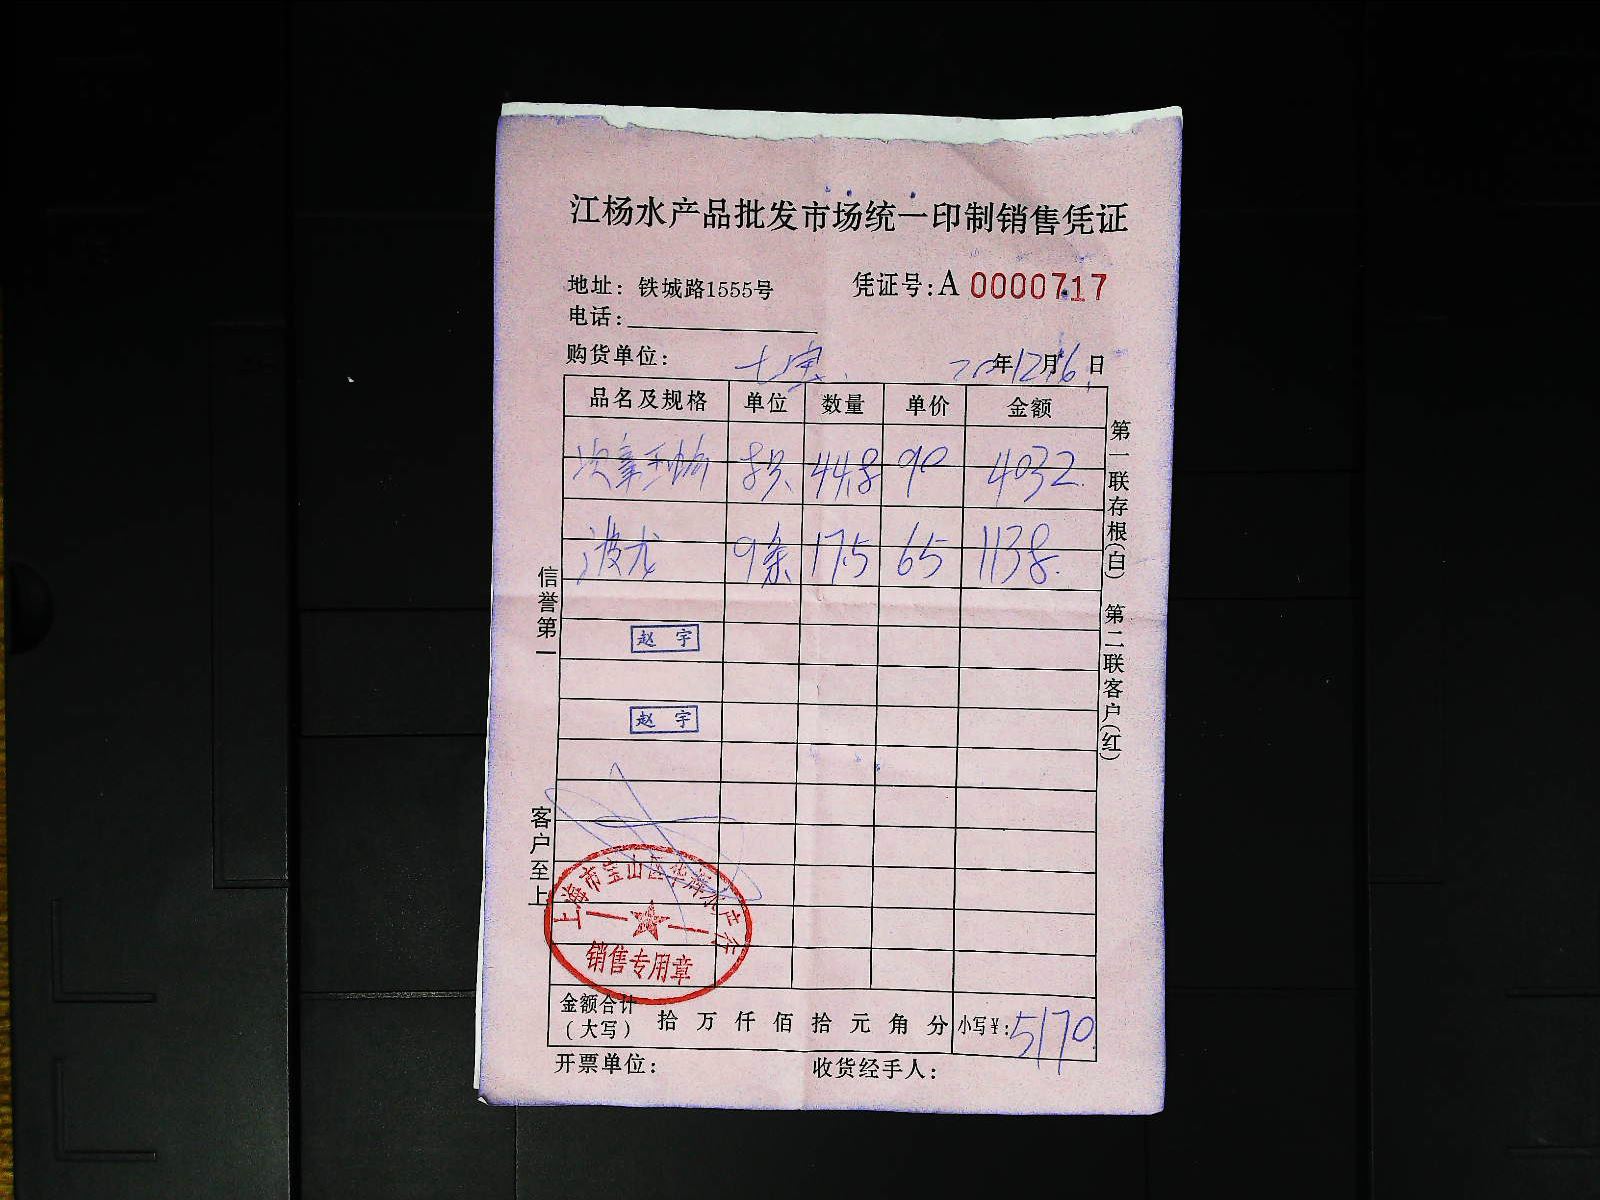 江杨水产品批发市场统一印制销售凭证
地址：铁城路1555号
凭证号：A 0000717
电话：
购货单位：七宝
20年12月16日
品名及规格 单位 数量 单价 金额
44.8 90 4032
波龙 9条 17.5 65 1138
赵宇
赵宇
上海市宝山区华辉水产行
销售专用章
金额合计（大写） 拾 万 仟 佰 拾 元 角 分 小写¥：5170
开票单位： 收货经手人：
信誉第一
客户至上
第一联存根（白） 第二联客户（红）